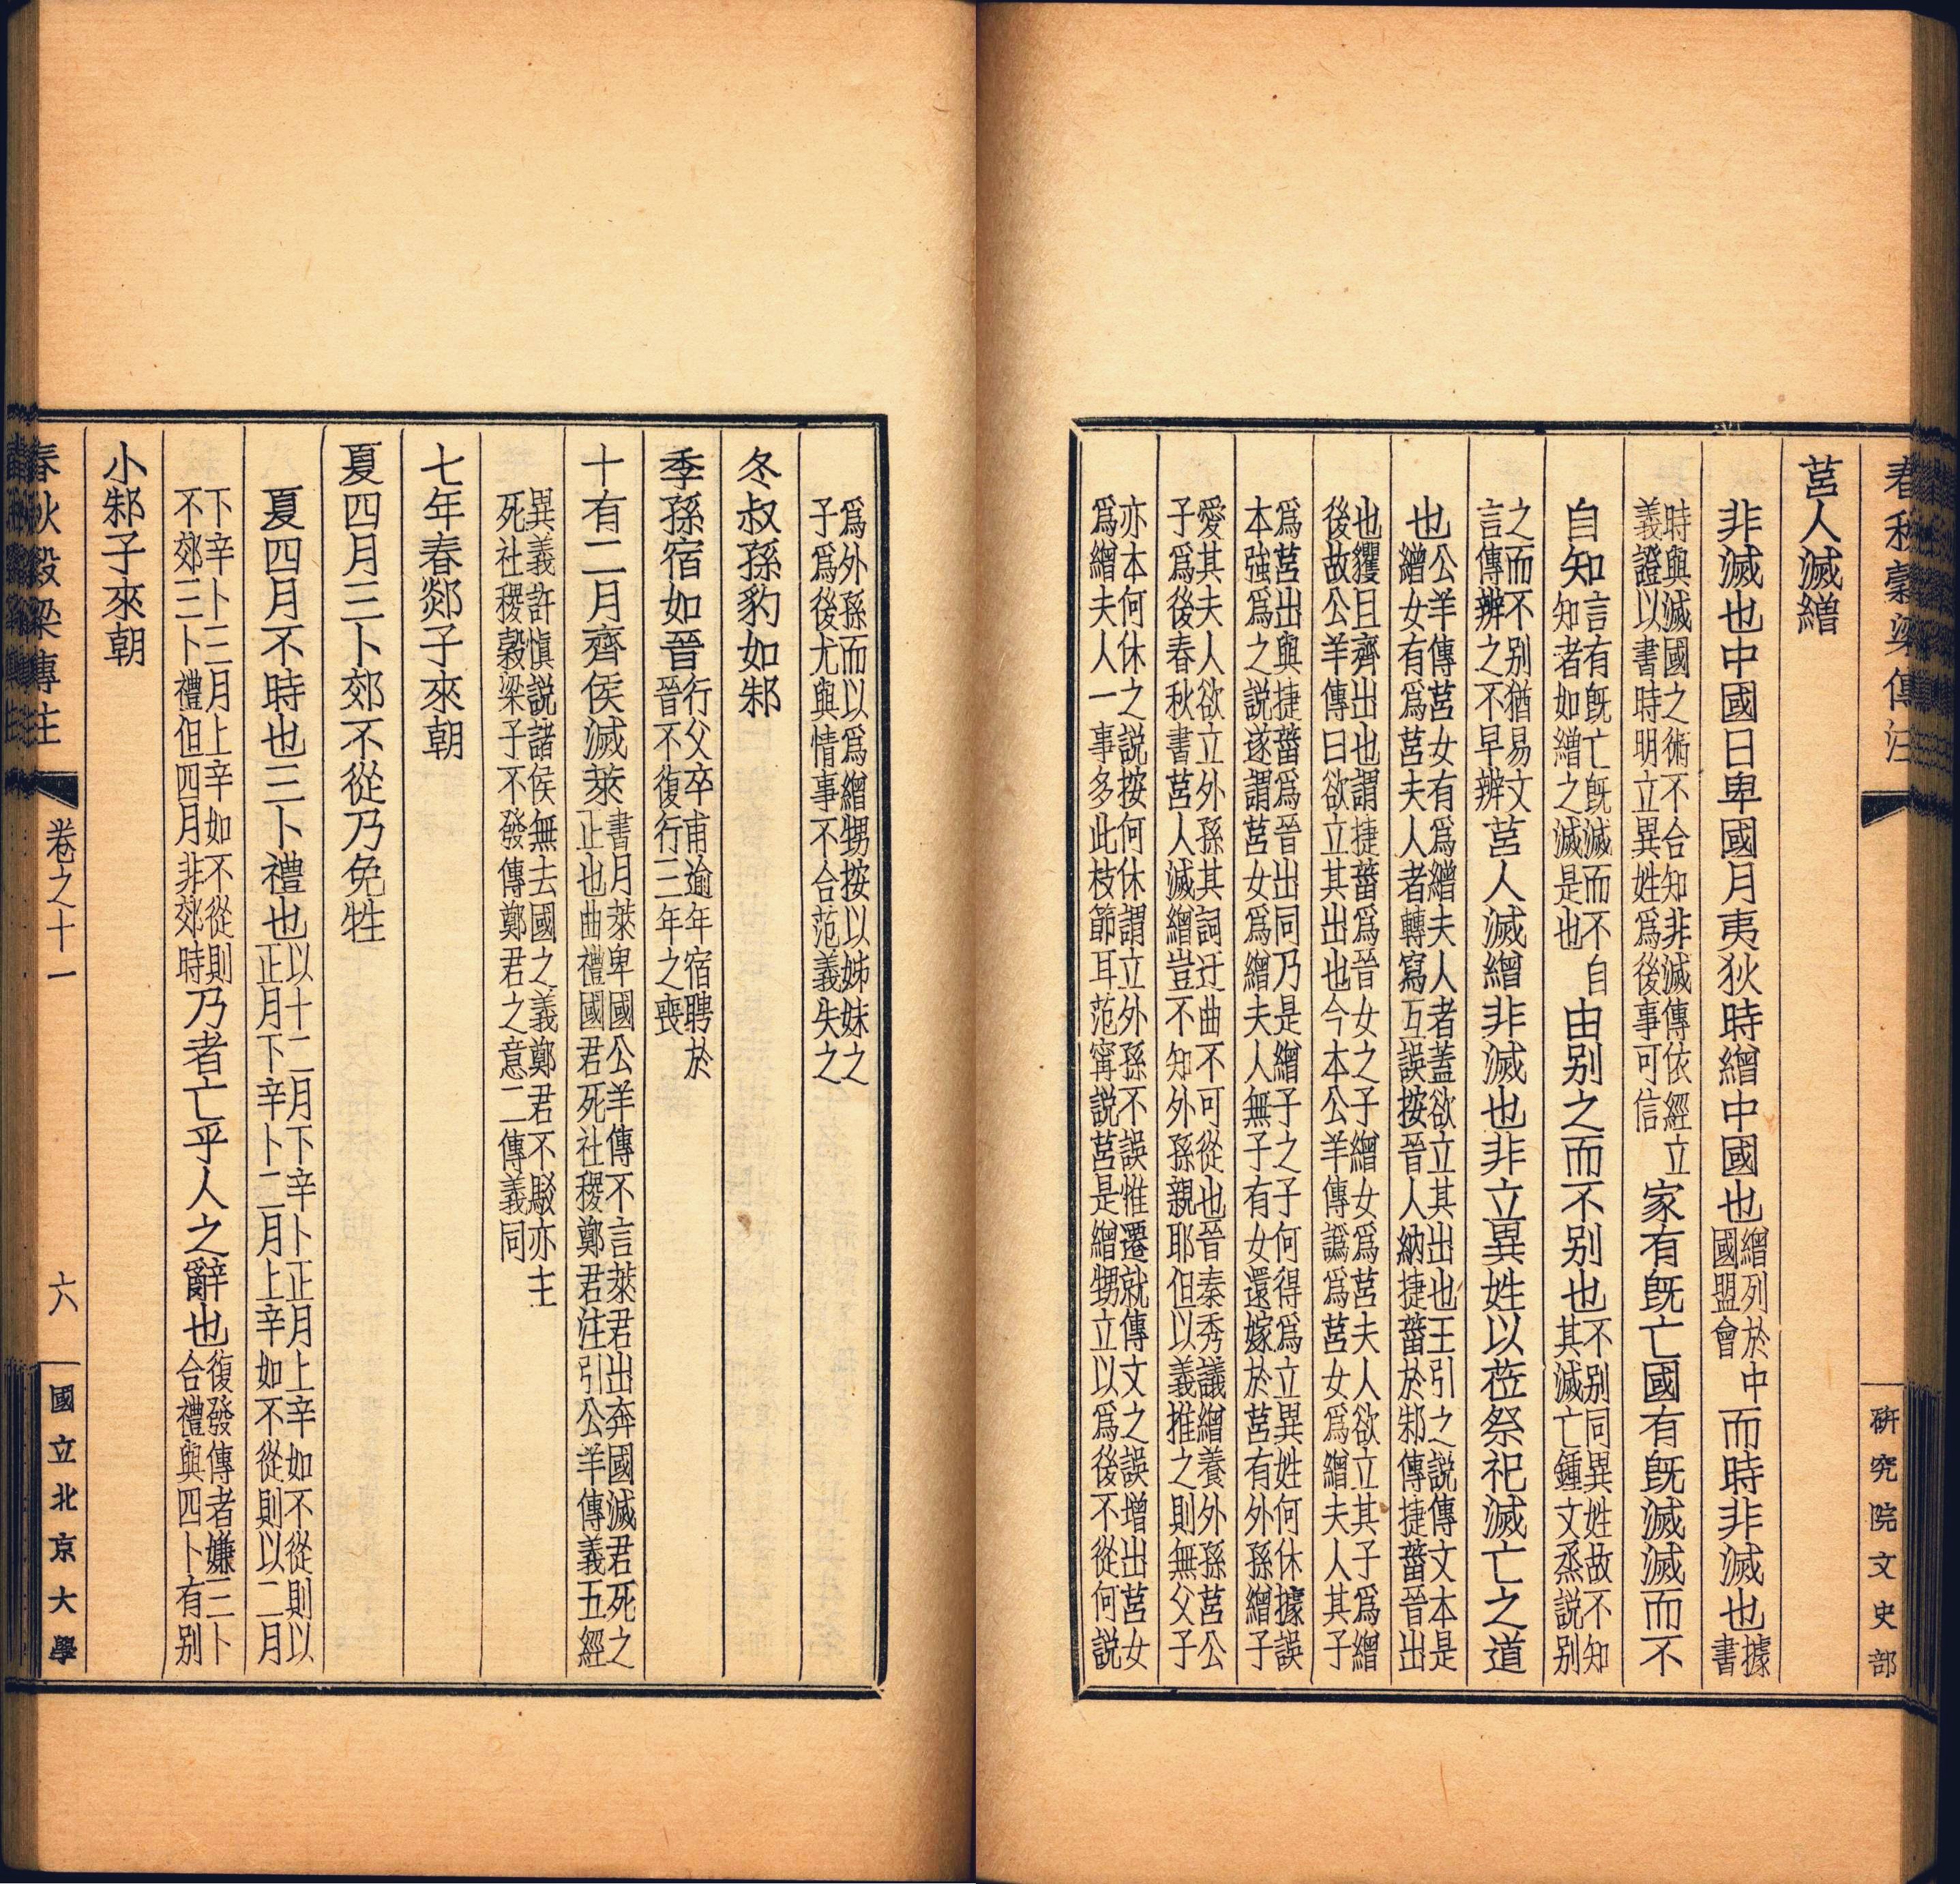 春秋穀梁傳注
研究院文史部
莒人滅繒
非滅也中國日卑國月夷狄時繒中國也繒列於中國盟會而時非滅也據書
時與滅國之術不合知非滅傳依經立義證以書時明立異姓爲後事可信家有旣亡國有旣滅滅而不
自知言有旣亡旣滅而不自知者如繒之滅是也由别之而不别也不别同異姓故不知其滅亡鍾文烝説别
之而不别猶易文言傳辨之不早辨莒人滅繒非滅也非立異姓以莅祭祀滅亡之道
也公羊傳莒女有爲繒夫人者蓋欲立其出也王引之説傳文本是繒女有爲莒夫人者轉寫互誤按晉人納捷菑於邾傳捷菑晉出
也貜且齊出也謂捷菑爲晉女之子繒女爲莒夫人欲立其子爲繒後故公羊傳曰欲立其出也今本公羊傳譌爲莒女爲繒夫人其子
爲莒出與捷菑爲晉出同乃是繒子之子何得爲立異姓何休據誤本強爲之説遂謂莒女爲繒夫人無子有女還嫁於莒有外孫繒子
愛其夫人欲立外孫其詞迂曲不可從也晉秦秀議繒養外孫莒公子爲後春秋書莒人滅繒豈不知外孫親耶但以義推之則無父子
亦本何休之説按何休謂立外孫不誤惟遷就傳文之誤增出莒女爲繒夫人一事多此枝節耳范甯説莒是繒甥立以爲後不從何説
爲外孫而以爲繒甥按以姊妹之子爲後尤與情事不合范義失之
冬叔孫豹如邾
季孫宿如晉行父卒甫逾年宿聘於晉不復行三年之喪
十有二月齊侯滅萊書月萊卑國公羊傳不言萊君出奔國滅君死之正也曲禮國君死社稷鄭君注引公羊傳義五經
異義許愼説諸侯無去國之義鄭君不駁亦主死社稷穀梁子不發傳鄭君之意二傳義同
七年春郯子來朝
夏四月三卜郊不從乃免牲
夏四月不時也三卜禮也以十二月下辛卜正月上辛如不從則以正月下辛卜二月上辛如不從則以二月
下辛卜三月上辛如不從則不郊三卜禮但四月非郊時乃者亡乎人之辭也復發傳者嫌三卜合禮與四卜有别
小邾子來朝
春秋穀梁傳注
卷之十一
六
國立北京大學